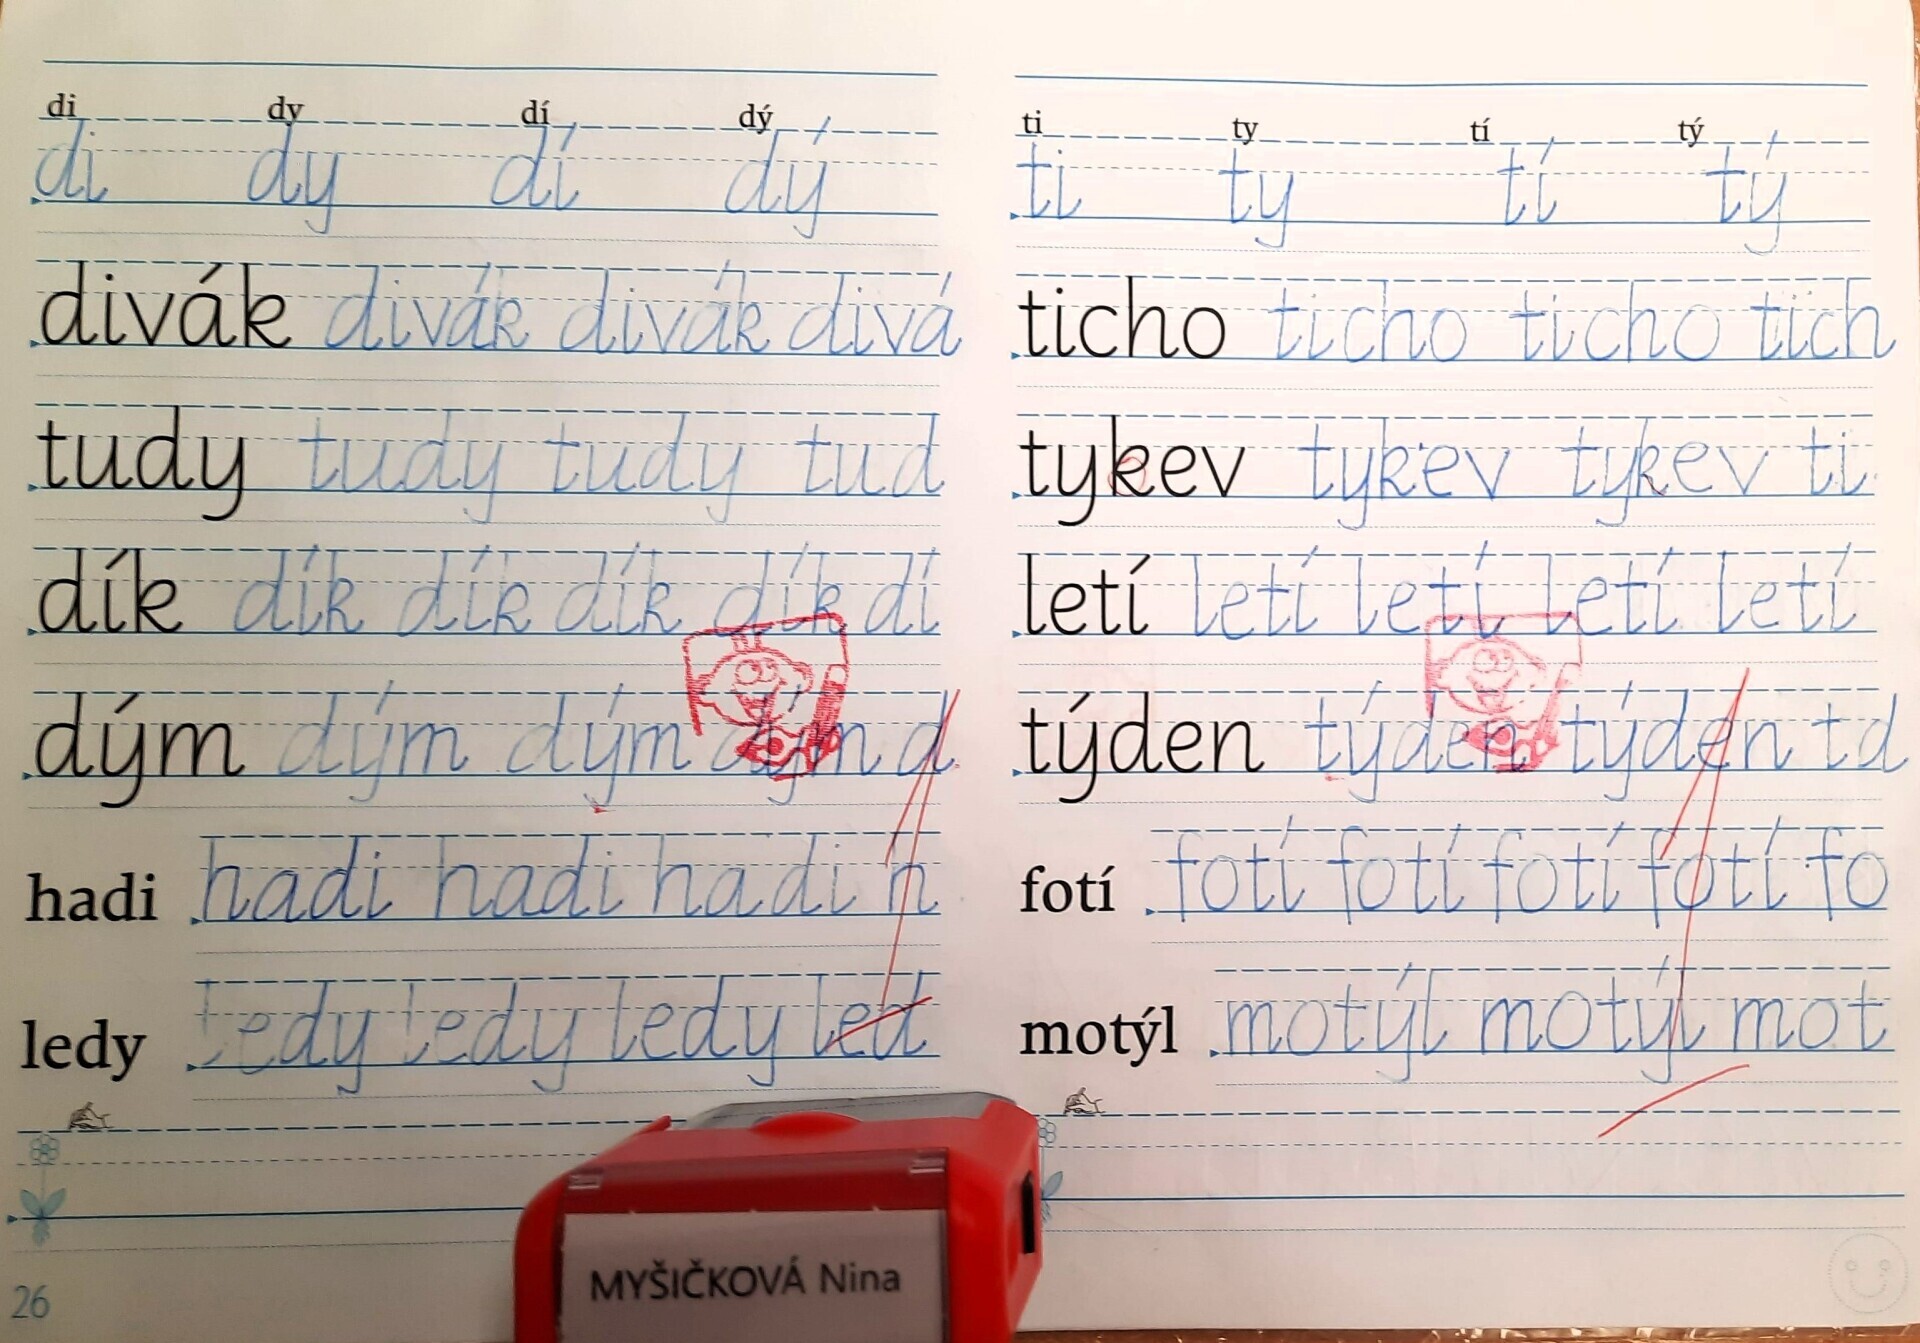 di dy dí dý
di dy dí dý
divák divák divák divá
tudy tudy tudy tud
dík dík dík dík dík dí
dým dým dým dým d
hadi hadi hadi hadi h
ledy ledy ledy ledy led
26
ti ty tí tý
ti ty tí tý
ticho ticho ticho tich
tykev tykev tykev ti
letí letí letí letí letí
týden týden týden td
fotí fotí fotí fotí fotí fo
motýl motýl motýl mot
MYŠIČKOVÁ Nina